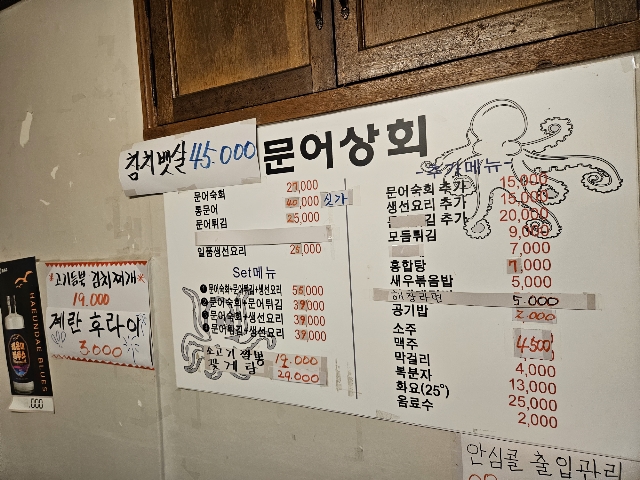 참치뱃살 45.000
문어상회
문어숙회 27,000
통문어 40,000 싯가
문어튀김 25,000
일품생선요리 25,000
Set메뉴
❶ 문어숙회+문어튀김+생선요리 55,000
❷ 문어숙회+문어튀김 39,000
❸ 문어숙회+생선요리 39,000
❹ 문어튀김+생선요리 39,000
소고기짬뽕 19.000
꽃게탕 29.000
-추가메뉴-
문어숙회 추가 15,000
생선요리 추가 15,000
김 추가 20,000
모듬튀김 9,000
7,000
홍합탕 7,000
새우볶음밥 5,000
해물라면 5.000
공기밥 2.000
소주
맥주 4.500
막걸리 4,000
복분자 13,000
화요(25°) 25,000
음료수 2,000
고기듬뿍 김치찌개
19.000
계란 후라이
3.000
HAEUNDAE BLUES
.000
안심콜 출입관리